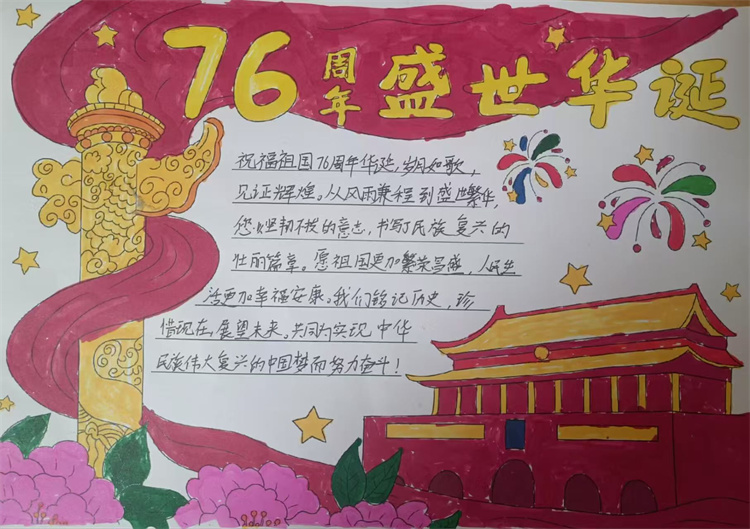 76周年盛世华诞
祝福祖国76周年华诞,岁月如歌,
见证辉煌。从风雨兼程到盛世繁华,
您以坚韧不拔的意志,书写了民族复兴的
壮丽篇章。愿祖国更加繁荣昌盛,人民生
活更加幸福安康。我们铭记历史,珍
惜现在,展望未来。共同为实现中华
民族伟大复兴的中国梦而努力奋斗!